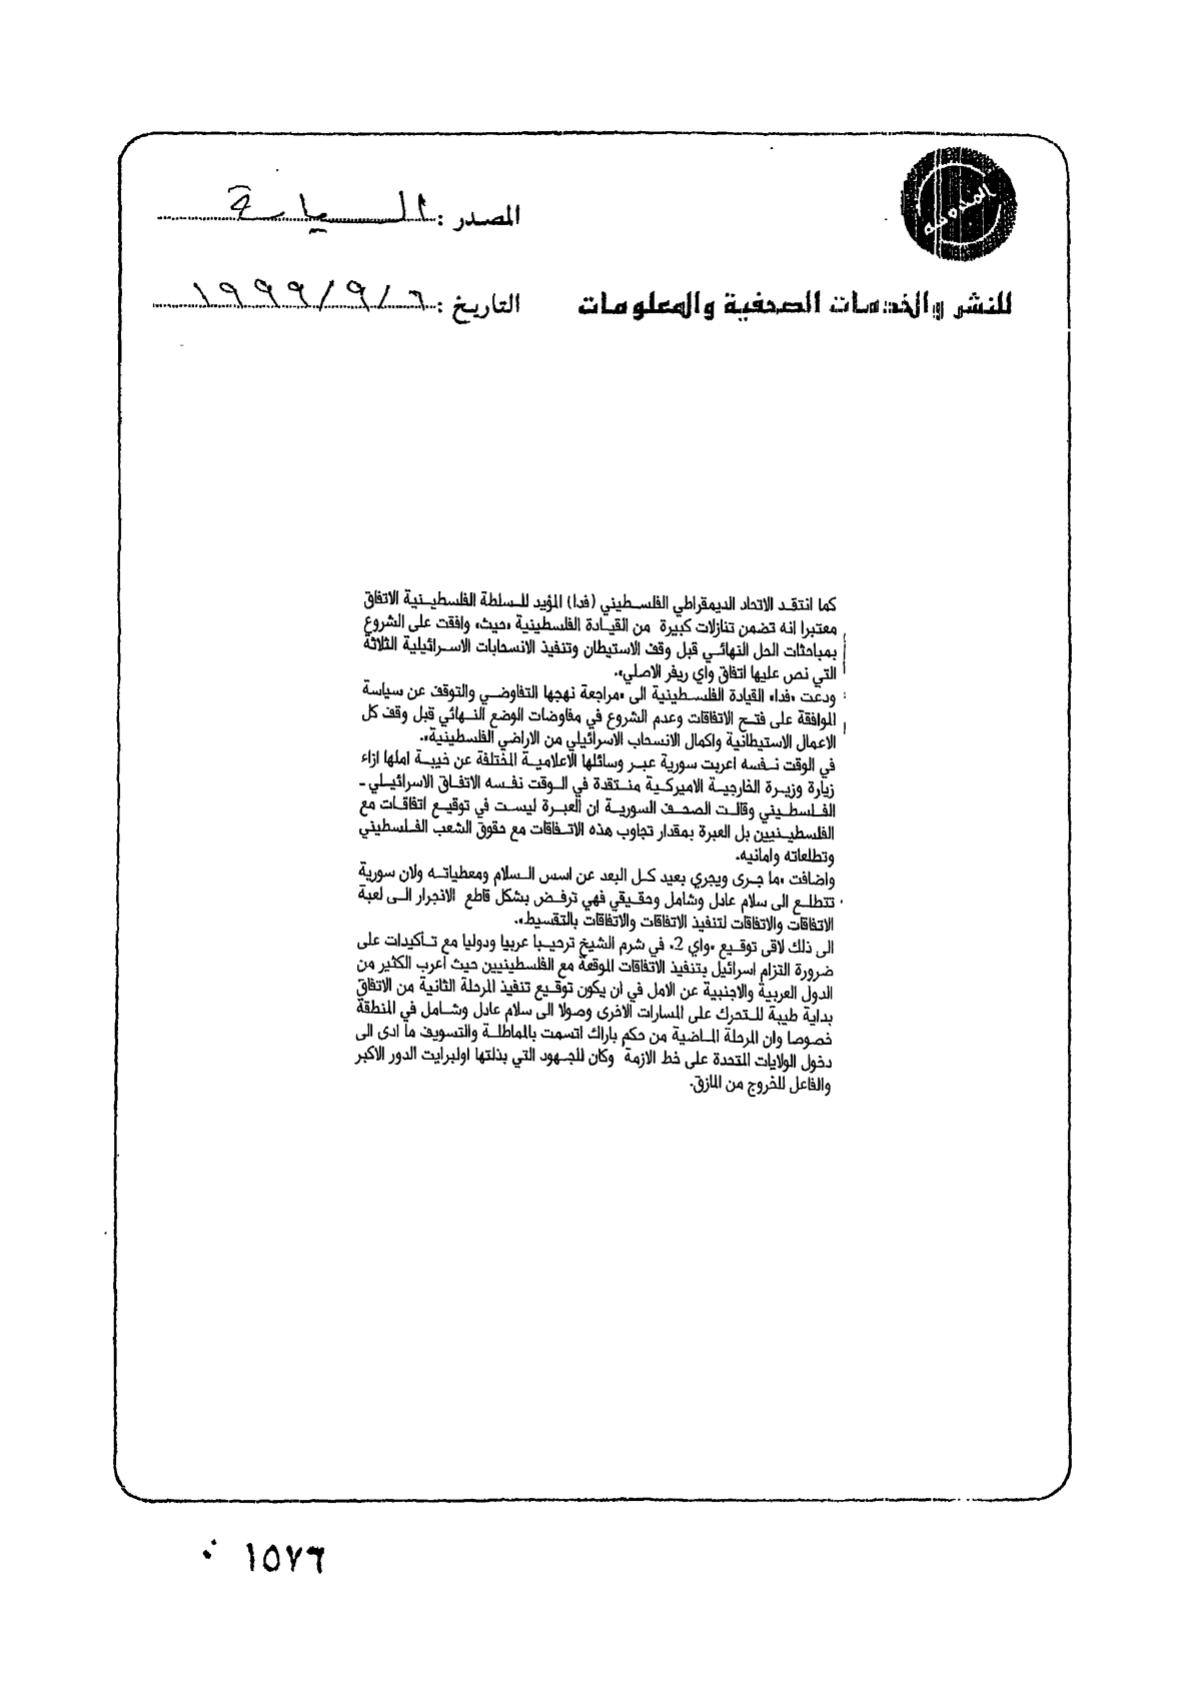 المصدر : السياسة
للنشر والخدمات الصحفية والمعلومات
التاريخ : ٦/٩/١٩٩٩
كما انتقد الاتحاد الديمقراطي الفلسطيني (فدا) المؤيد للسلطة الفلسطينية الاتفاق
معتبرا انه تضمن تنازلات كبيرة من القيادة الفلسطينية «حيث» وافقت على الشروع
بمباحثات الحل النهائي قبل وقف الاستيطان وتنفيذ الانسحابات الاسرائيلية الثلاثة
التي نص عليها اتفاق واي ريفر الاصلي».
ودعت «فدا» القيادة الفلسطينية الى «مراجعة نهجها التفاوضي والتوقف عن سياسة
الموافقة على فتح الاتفاقات وعدم الشروع في مفاوضات الوضع النهائي قبل وقف كل
الاعمال الاستيطانية واكمال الانسحاب الاسرائيلي من الاراضي الفلسطينية».
في الوقت نفسه اعربت سورية عبر وسائلها الاعلامية المختلفة عن خيبة املها ازاء
زيارة وزيرة الخارجية الاميركية منتقدة في الوقت نفسه الاتفاق الاسرائيلي -
الفلسطيني وقالت الصحف السورية ان العبرة ليست في توقيع اتفاقات مع
الفلسطينيين بل العبرة بمقدار تجاوب هذه الاتفاقات مع حقوق الشعب الفلسطيني
وتطلعاته وامانيه.
واضافت «ما جرى ويجري بعيد كل البعد عن اسس السلام ومعطياته ولان سورية
تتطلع الى سلام عادل وشامل وحقيقي فهي ترفض بشكل قاطع الانجرار الى لعبة
الاتفاقات والاتفاقات لتنفيذ الاتفاقات والاتفاقات بالتقسيط».
الى ذلك لاقى توقيع «واي 2» في شرم الشيخ ترحيبا عربيا ودوليا مع تأكيدات على
ضرورة التزام اسرائيل بتنفيذ الاتفاقات الموقعة مع الفلسطينيين حيث اعرب الكثير من
الدول العربية والاجنبية عن الامل في ان يكون توقيع تنفيذ المرحلة الثانية من الاتفاق
بداية طيبة للتحرك على المسارات الاخرى وصولا الى سلام عادل وشامل في المنطقة
خصوصا وان المرحلة الماضية من حكم باراك اتسمت بالمماطلة والتسويف ما ادى الى
دخول الولايات المتحدة على خط الازمة وكان للجهود التي بذلتها اولبرايت الدور الاكبر
والفاعل للخروج من المازق.
١٥٧٦